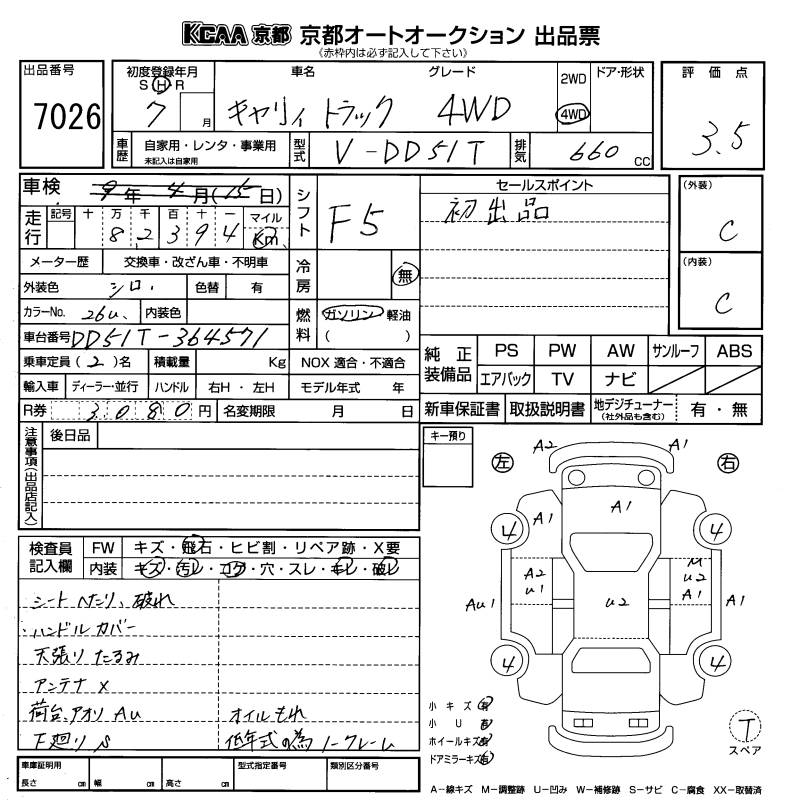 KCAA 京都 京都オートオークション 出品票
(赤枠内は必ず記入して下さい)
出品番号 初度登録年月 車名 グレード 2WD ドア・形状 評価点
S H R
7026 7 月 キャリィ トラック 4WD 4WD 3.5
車歴 自家用・レンタ・事業用 型式 V-DD51T 排気 660 CC
未記入は自家用
車検 9年 4月(15日) シフト F5 セールスポイント (外装)
走行 記号 十 万 千 百 十 一 マイル 初出品 C
8 2 3 9 4 Km
メーター歴 交換車・改ざん車・不明車 冷房 無 (内装)
外装色 シロ. 色替 有 C
カラーNo. 26u. 内装色 燃料 ガソリン 軽油
車台番号 DD51T-364571 ( )
乗車定員 (2)名 積載量 Kg NOX 適合・不適合 純正装備品 PS PW AW サンルーフ ABS
輸入車 ディーラー・並行 ハンドル 右H・左H モデル年式 年 エアバック TV ナビ
R券 3080円 名変期限 月 日 新車保証書 取扱説明書 地デジチューナー 有・無
(社外品も含む)
注意事項(出品店記入) 後日品 キー預り
左 A2 A1 右
A1
4 A1 4
検査員記入欄 FW キズ・飛石・ヒビ割・リペア跡・X要
内装 キズ・汚レ・コゲ・穴・スレ・キレ・破レ
A2 M
U1 U2 U2
A1
AU1 A1
シートへたり、破れ
ハンドルカバー
天張りたるみ
アンテナ X
4 4
荷台.アオリ AU オイルもれ
下廻り S 低年式の為 ノークレーム
小キズ 有
小U 有
ホイールキズ 有
ドアミラーキズ 有
T
スペア
車庫証明用 型式指定番号 類別区分番号
長さ cm 幅 cm 高さ cm
A-線キズ M-調整跡 U-凹み W-補修跡 S-サビ C-腐食 XX-取替済